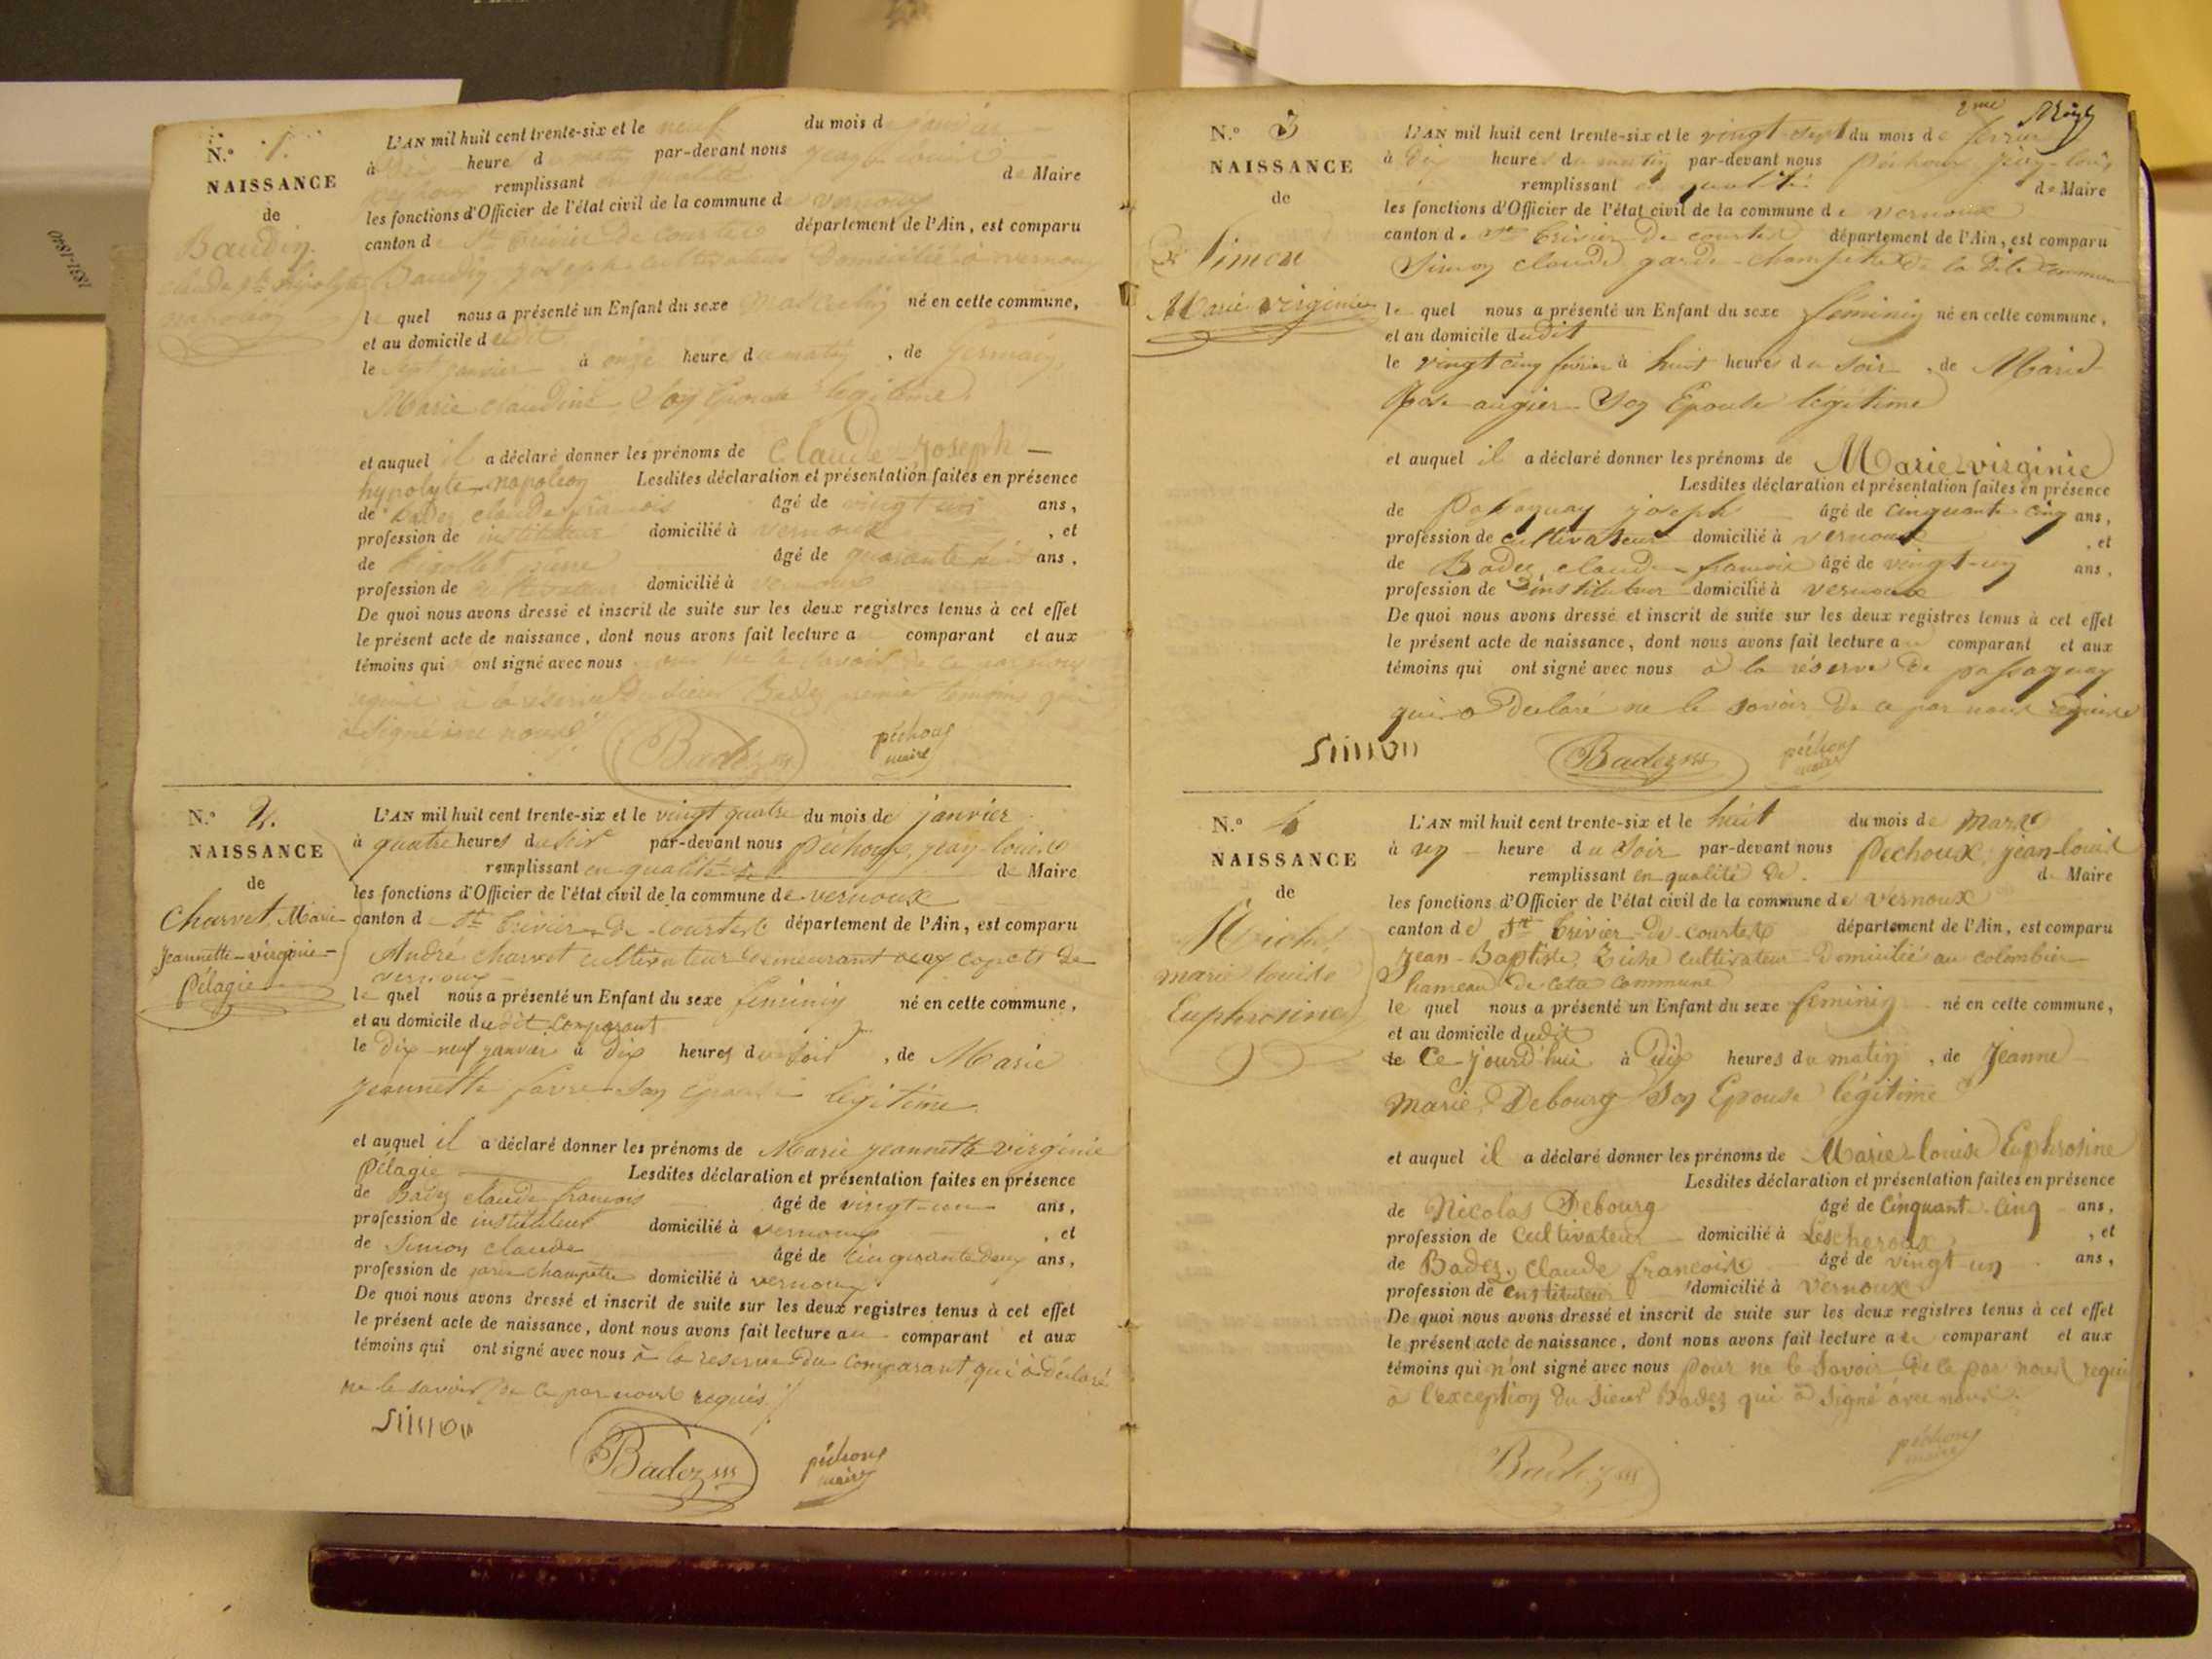 1831-1840
N.° 1.
NAISSANCE
de
Baudin
Claude Jh hypolyte
napoléon
L'AN mil huit cent trente-six et le neuf du mois de janvier
à heure d matin par-devant nous jean louis
remplissant en qualité de Maire
les fonctions d'Officier de l'état civil de la commune de vernoux
canton de St trivier de courtes département de l'Ain, est comparu
Baudin joseph cultivateur Domicilié à vernoux
le quel nous a présenté un Enfant du sexe masculin né en cette commune,
et au domicile dudit
le sept janvier à onze heures du matin, de germain
Marie claudine Son Epouse légitime
et auquel il a déclaré donner les prénoms de Claude-Joseph —
hypolyte napoléon Lesdites déclaration et présentation faites en présence
de Badez claude françois âgé de vingt un ans,
profession de instituteur domicilié à vernoux, et
de âgé de quarante ans,
profession de domicilié à vernoux
De quoi nous avons dressé et inscrit de suite sur les deux registres tenus à cet effet
le présent acte de naissance, dont nous avons fait lecture a comparant et aux
témoins qui ont signé avec nous pour ne le savoir de ce par nous
requis à la réserve du sieur Badez premier témoins qui
a signé avec nous
Badez péchoux
maire
N.° 2.
NAISSANCE
de
Charvet, Marie
Jeannette-virginie-
Pélagie
L'AN mil huit cent trente-six et le vingt quatre du mois de janvier
à quatre heures du soir par-devant nous péchoux, jean-louis
remplissant en qualité de de Maire
les fonctions d'Officier de l'état civil de la commune de vernoux
canton de St trivier de courtes département de l'Ain, est comparu
André charvet cultivateur demeurant aux de
vernoux
le quel nous a présenté un Enfant du sexe féminin né en cette commune,
et au domicile dudit comparant
le dix-neuf janvier à dix heures du soir, de Marie
jeannette favre son épouse légitime
et auquel il a déclaré donner les prénoms de Marie jeannette virginie
Pélagie Lesdites déclaration et présentation faites en présence
de Badez claude françois âgé de vingt-un ans,
profession de instituteur domicilié à vernoux, et
de Simon claude âgé de cinquante deux ans,
profession de garde champêtre domicilié à vernoux
De quoi nous avons dressé et inscrit de suite sur les deux registres tenus à cet effet
le présent acte de naissance, dont nous avons fait lecture au comparant et aux
témoins qui ont signé avec nous à la réserve du comparant qui a déclaré
ne le savoir de ce par nous requis
Simon
Badez péchoux
maire
2me
N.° 3
NAISSANCE
de
Simon
Marie virginie
L'AN mil huit cent trente-six et le vingt-sept du mois de février
à dix heures du matin par-devant nous péchoux jean-louis
remplissant en qualité de Maire
les fonctions d'Officier de l'état civil de la commune de vernoux
canton de St trivier de courtes département de l'Ain, est comparu
Simon claude garde-champêtre de la dite commune
le quel nous a présenté un Enfant du sexe féminin né en cette commune,
et au domicile dudit
le vingt cinq février à huit heures du soir, de Marie
Rose augier Son Epouse légitime
et auquel il a déclaré donner les prénoms de Marie-virginie
Lesdites déclaration et présentation faites en présence
de Passaquay joseph âgé de cinquante cinq ans,
profession de cultivateur domicilié à vernoux, et
de Badez claude françois âgé de vingt-un ans,
profession de instituteur domicilié à vernoux
De quoi nous avons dressé et inscrit de suite sur les deux registres tenus à cet effet
le présent acte de naissance, dont nous avons fait lecture au comparant et aux
témoins qui ont signé avec nous à la réserve de passaquay
qui a déclaré ne le savoir de ce par nous requis
Simon Badez péchoux
maire
N.° 4
NAISSANCE
de
marie louise
Euphrosine
L'AN mil huit cent trente-six et le huit du mois de mars
à un heure du soir par-devant nous Péchoux, jean-louis
remplissant en qualité de. de Maire
les fonctions d'Officier de l'état civil de la commune de vernoux
canton de St trivier de courtes département de l'Ain, est comparu
Jean-Baptiste cultivateur Domicilié au colombier
hameau de cete commune
le quel nous a présenté un Enfant du sexe féminin né en cette commune,
et au domicile dudit
le Ce-jourd'hui à dix heures du matin, de Jeanne
marie Debourg Son Epouse légitime
et auquel il a déclaré donner les prénoms de Marie-louise Euphrosine
Lesdites déclaration et présentation faites en présence
de Nicolas Debourg âgé de Cinquant-Cinq ans,
profession de cultivateur domicilié à Lescheroux, et
de Badez, Claude françois âgé de vingt-un ans,
profession de instituteur domicilié à Vernoux
De quoi nous avons dressé et inscrit de suite sur les deux registres tenus à cet effet
le présent acte de naissance, dont nous avons fait lecture au comparant et aux
témoins qui n'ont signé avec nous pour ne le Savoir de ce par nous requis
à l'exception du sieur Badez qui a signé avec nous.
Badez péchoux
maire